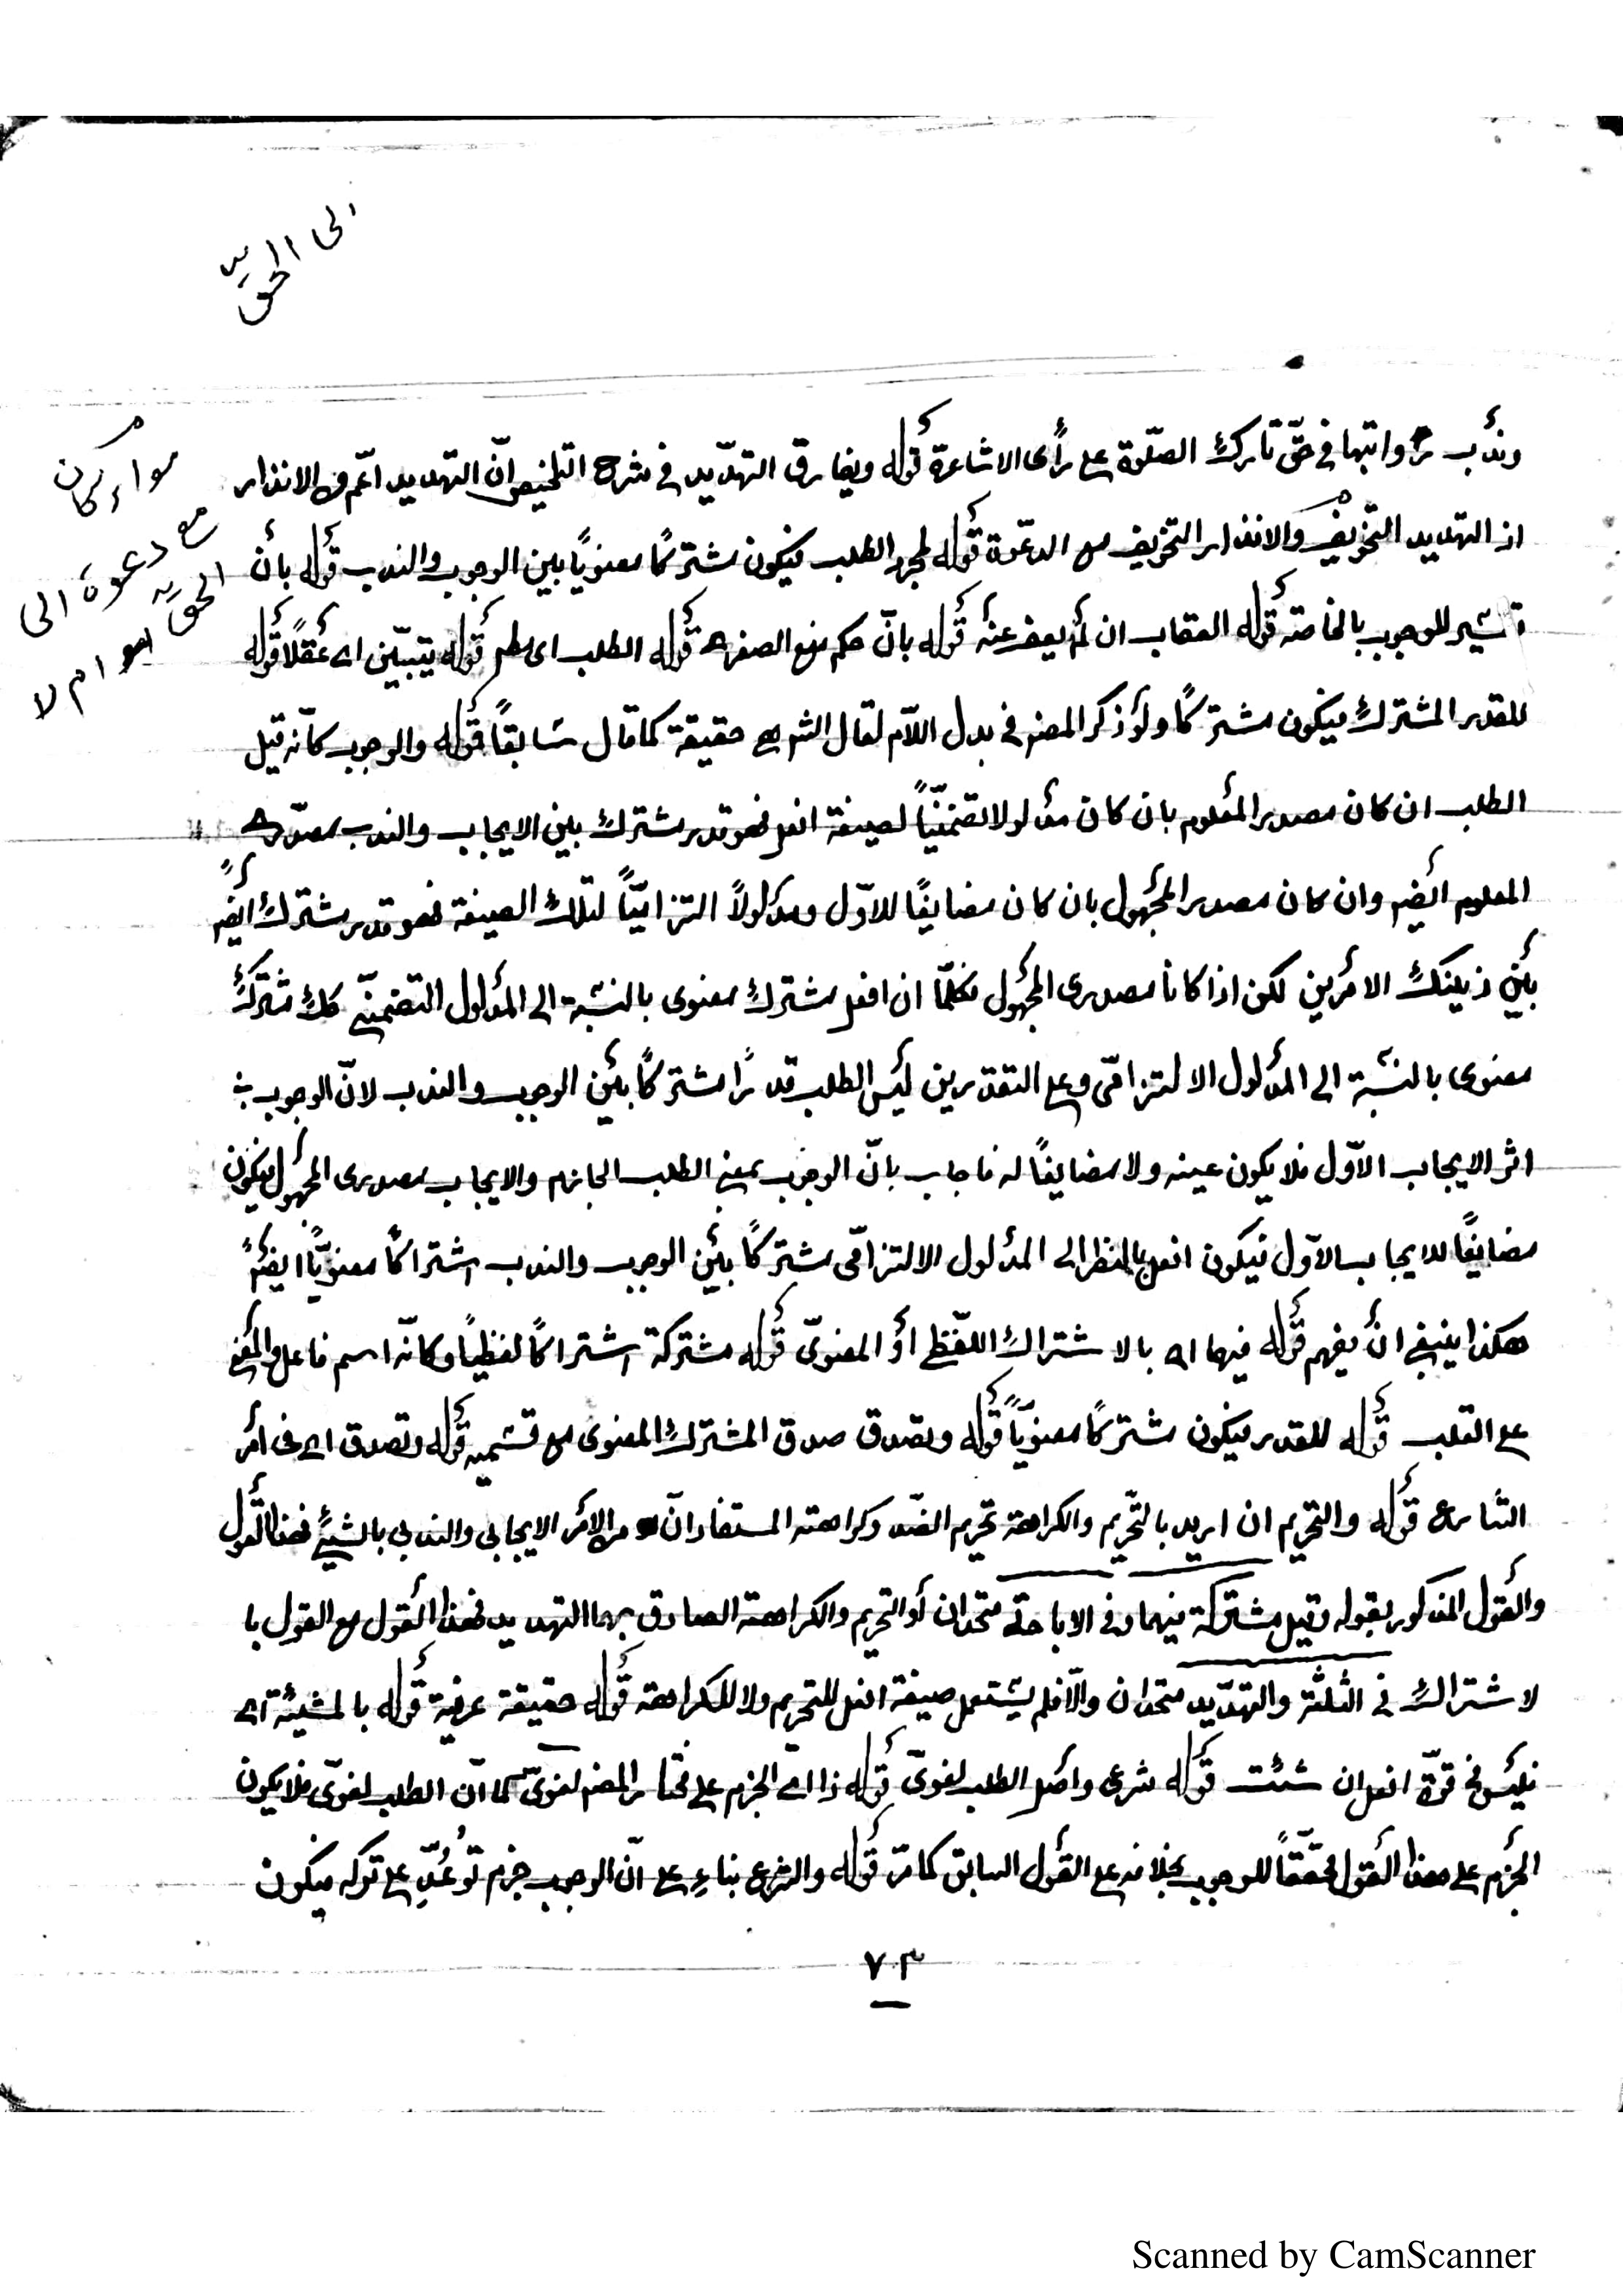 الى الحق
سواء كان
مع دعوة الى
الحق
ام لا
وندب رواتبها فى حق تارك الصلوة على رأى الاشاعرة قوله ويفارق التهديد فى شرح التلخيص ان التهديد اعم من الانذار
اذ التهديد التخويف والانذار التخويف مع الدعوة قوله لمجرد الطلب فيكون مشتركا معنويا بين الوجوب والندب قوله بأن
تشير للوجوب بالخاصة قوله العقاب ان لم يعف عنه قوله بان حكم قوله الطلب اى قوله يتبين اى عقلا قوله
للقدر المشترك فيكون مشتركا ولو ذكر المصنف فى بدل اللام لقال الشارح حقيقة كما قال سابقا قوله والوجوب كانه قيل
الطلب ان كان مصدر المعلوم بان كان مدلولا تضمنيا لصيغة افعل فهو قدر مشترك بين الايجاب والندب مصدرى
المعلوم ايضا وان كان مصدر المجهول بان كان مضايفا للاول ومدلولا التزاميا لتلك الصيغة فهو قدر مشترك ايضا
بين ذينك الامرين لكن اذا كانا مصدرى المجهول فكما ان افعل مشترك معنوى بالنسبة الى المدلول التضمنى كذلك مشترك
معنوى بالنسبة الى المدلول الالتزامى وعلى التقديرين ليس الطلب قدرا مشتركا بين الوجوب والندب لان الوجوب
اثر الايجاب الاول فلا يكون عينه ولا مضايفا له فاجاب بان الوجوب بمعنى الطلب الجازم والايجاب مصدرى المجهول فيكون
مضايفا للايجاب الاول فيكون افعل بالنظر الى المدلول الالتزامى مشتركا بين الوجوب والندب اشتراكا معنويا ايضا
هكذا ينبغى ان يفهم قوله فيهما اى بالاشتراك اللفظى او المعنوى قوله مشتركة اشتراكا لفظيا وكانه اسم فاعل والمعنى
على القلب قوله للقدر فيكون مشتركا معنويا قوله وتصدق صدق المشترك المعنوى مع قسميه قوله وتصدق اى فى امر
الشارع قوله والتحريم ان اريد بالتحريم والكراهة تحريم الضد وكراهته المستفادان من الامر الايجابى والندبى بالشيئ فهذا القول
والقول المذكور بقوله وقيل مشتركة فيهما وفى الاباحة متحدان او التحريم والكراهة الصادق بهما التهديد فهذا القول مع القول با
لاشتراك فى الثلثة والتهديد متحدان والا فلم يستعمل صيغة افعل للتحريم ولا للكراهة قوله حقيقة عرفية قوله بالمشيئة اى
فليس فى قوة افعل ان شئت قوله شرعى واصل الطلب لغوى قوله ذا اى الجزم على مختار المصنف لغوى كما ان الطلب لغوى فلا يكون
الجزم على هذا القول محققا للوجوب بخلافه على القول السابق كما مر قوله والشرع بناء على ان الوجوب جزم توعد على تركه فيكون
٧٠٣
Scanned by CamScanner